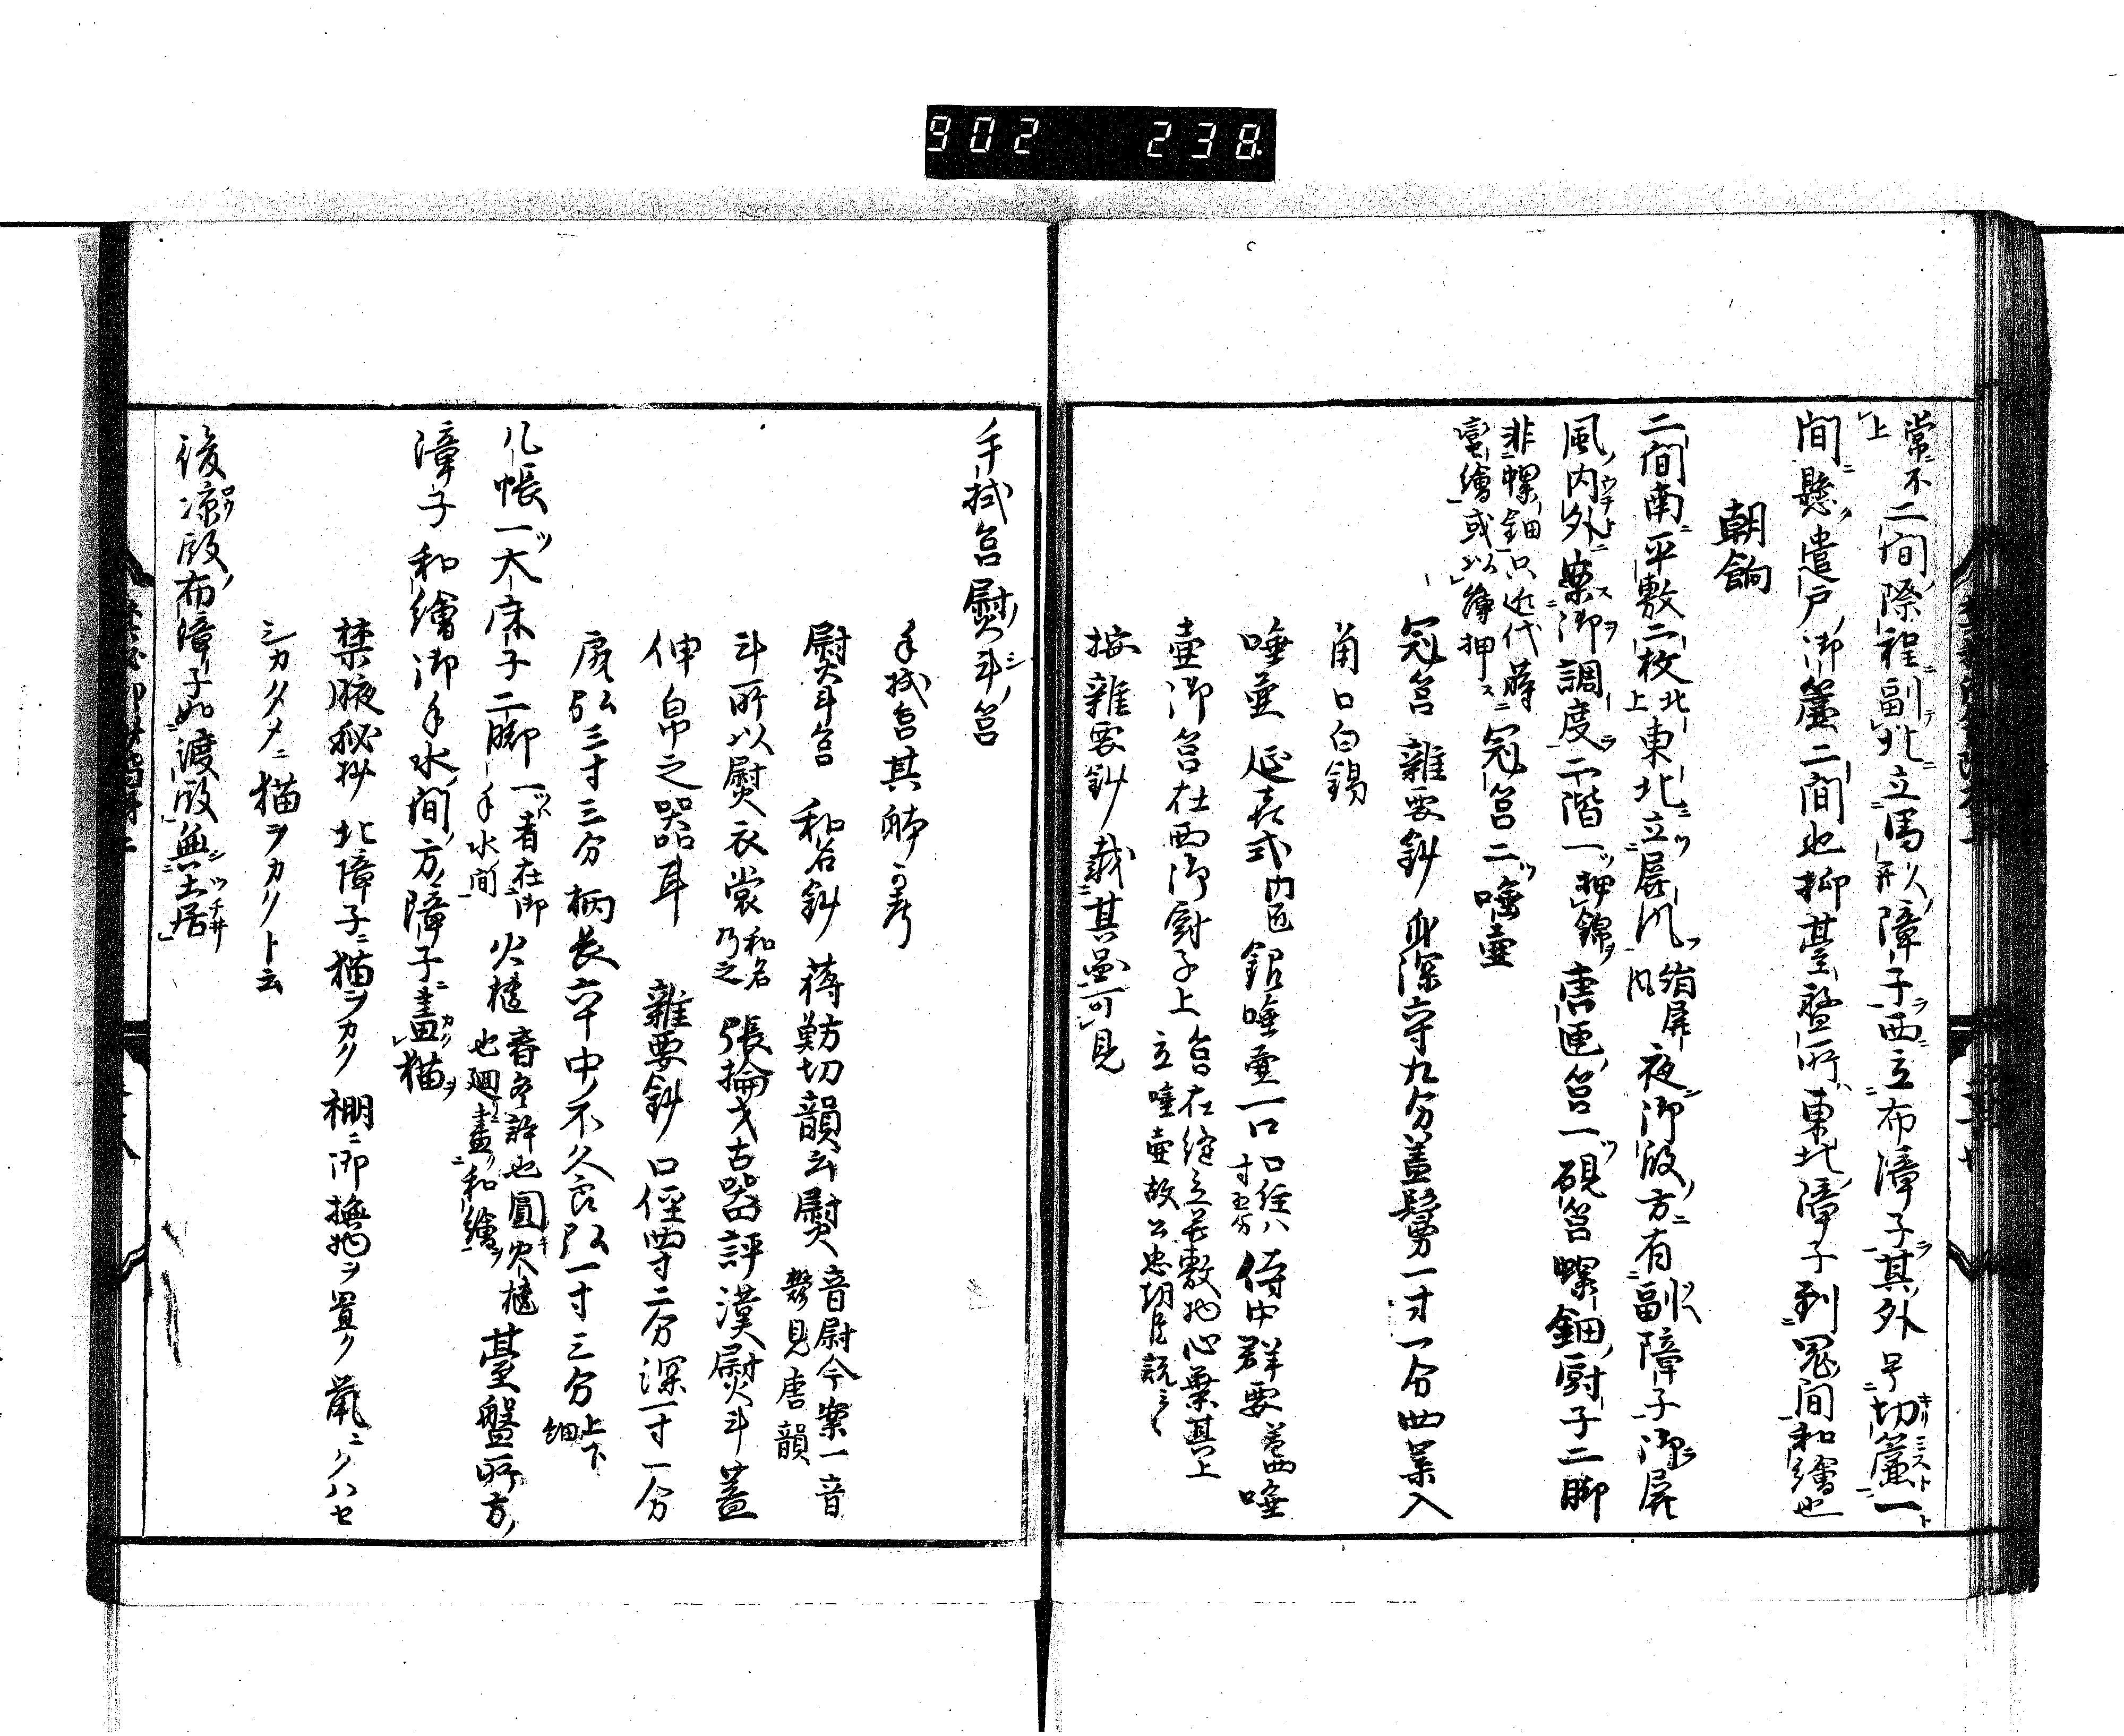 902 238
常不上二間際程副北立馬形障子西立布障子其外号切簾一
間懸遣戸御簾二間也抑臺盤所東北障子到鬼間和繪也
朝餉
二間南平敷二枚北上東北立屏風夜御殿方有副障子御屏
風内外案御調度二階一押錦唐匣筥一硯筥螺鈿厨子二脚
非螺鈿只近代蒔
蠻繪或以錦押冠筥二唾壺
冠筥 雜要鈔 身深六寸九分蓋鬘一寸一分四葉入
角口白錫
唾壷 延喜式内匠 銀唾壷一口口径八寸五分 侍中群要 唾
壷御筥在西御厨子上
按雜要鈔載其啚可見
手拭筥熨斗筥
手拭筥其
熨斗筥 和名鈔 蒋魴切韻云熨音尉今案一音
見唐韻
斗所以熨衣裳 和名乃之 張掄 古器評漢熨斗蓋
伸帛之器耳 雜要鈔 口徑四寸二分深一寸一分
弘三寸三分柄長六寸中不久良弘一寸三分上下細
几帳一大床子二脚一者在御手水間火櫃 圓火櫃也廻畫和繪臺盤所方
障子和繪御手水間方障子畫猫
禁腋秘抄 北障子ニ猫ヲカク 棚ニ御撫物ヲ置ク 鼠ニクハセ
シカタメニ猫ヲカクト云
後凉殿布障子如渡殿無土居